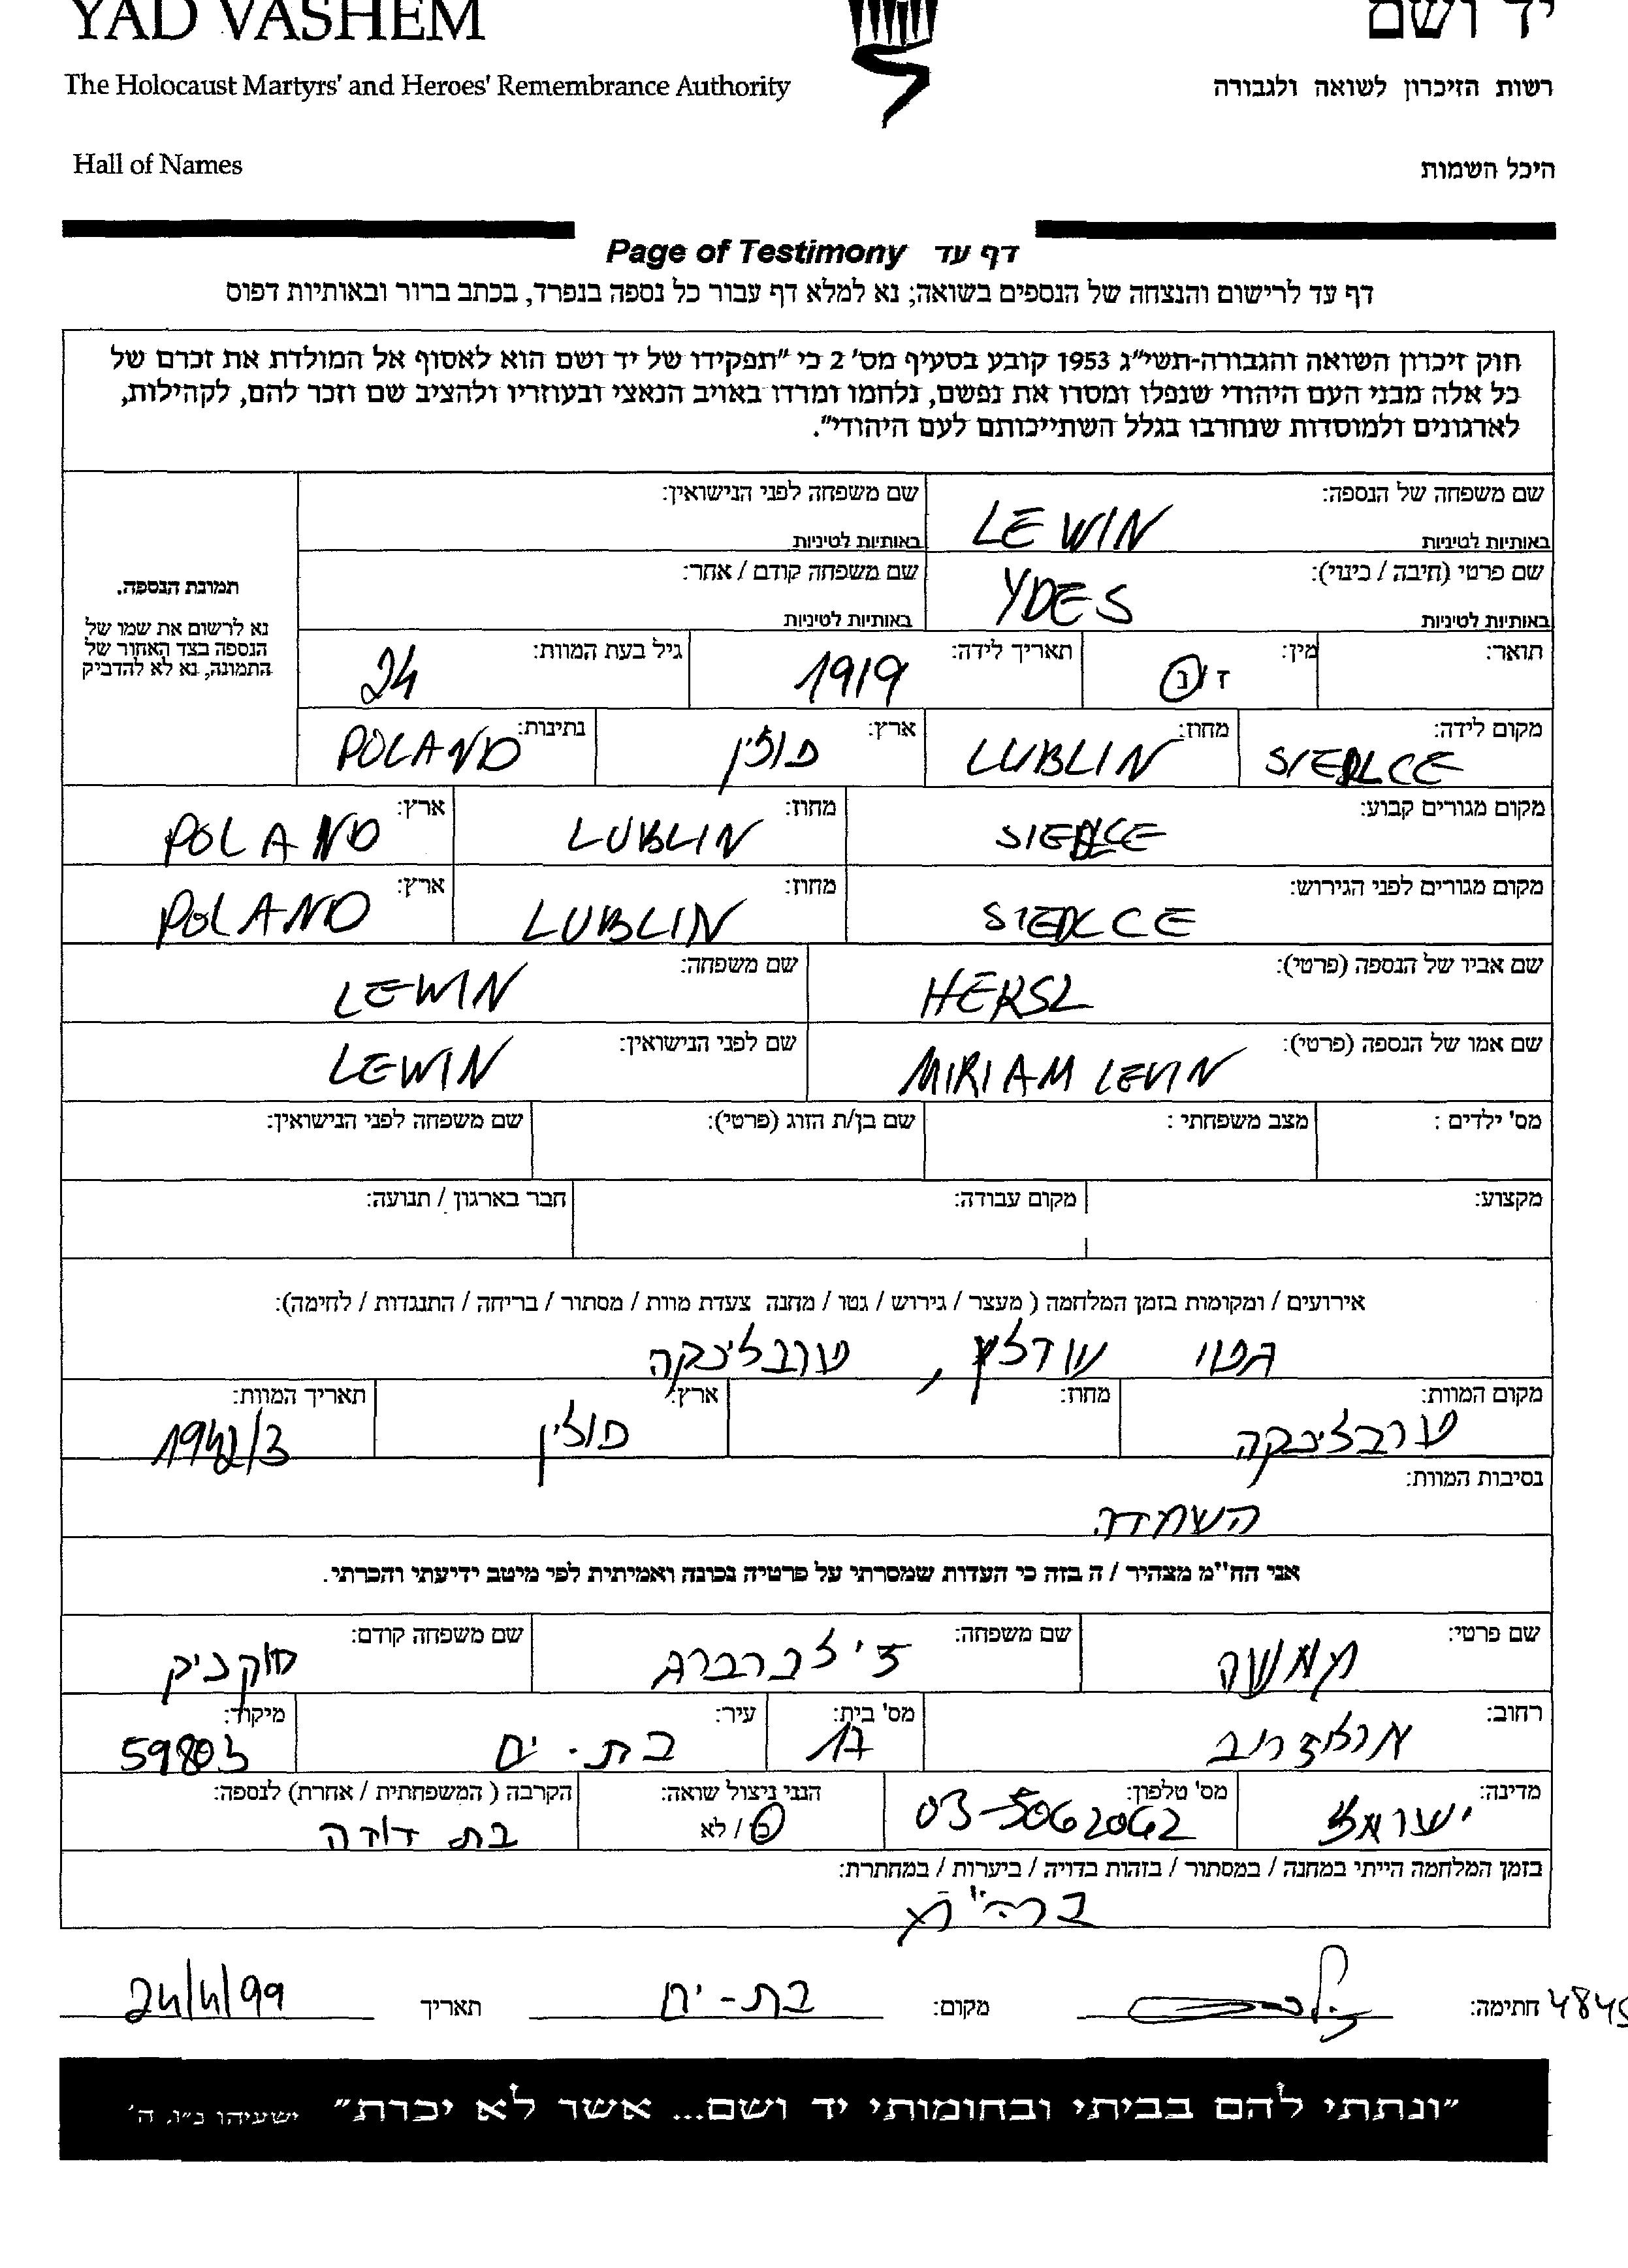 YAD VASHEM יד ושם
The Holocaust Martyrs' and Heroes' Remembrance Authority רשות הזיכרון לשואה ולגבורה
Hall of Names היכל השמות
Page of Testimony דף עד
דף עד לרישום והנצחה של הנספים בשואה; נא למלא דף עבור כל נספה בנפרד, בכתב ברור ובאותיות דפוס
חוק זיכרון השואה והגבורה-תשי״ג 1953 קובע בסעיף מס׳ 2 כי ״תפקידו של יד ושם הוא לאסוף אל המולדת את זכרם של
כל אלה מבני העם היהודי שנפלו ומסרו את נפשם, נלחמו ומרדו באויב הנאצי ובעוזריו ולהציב שם וזכר להם, לקהילות,
לארגונים ולמוסדות שנחרבו בגלל השתייכותם לעם היהודי״.
שם משפחה של הנספה: LEWIN שם משפחה לפני הנישואין:
באותיות לטיניות באותיות לטיניות
שם פרטי (חיבה / כינוי): YDES שם משפחה קודם / אחר:
באותיות לטיניות באותיות לטיניות
תמונת הנספה.
נא לרשום את שמו של
הנספה בצד האחור של
התמונה, נא לא להדביק
תואר: מין: ז / נ תאריך לידה: 1919 גיל בעת המוות: 24
מקום לידה: SIEDLCE מחוז: LUBLIN ארץ: פולין נתינות: POLAND
מקום מגורים קבוע: SIEDLCE מחוז: LUBLIN ארץ: POLAND
מקום מגורים לפני הגירוש: SIEDLCE מחוז: LUBLIN ארץ: POLAND
שם אביו של הנספה (פרטי): HERSL שם משפחה: LEWIN
שם אמו של הנספה (פרטי): MIRIAM LEVIN שם לפני הנישואין: LEWIN
מס׳ ילדים : מצב משפחתי : שם בן/ת הזוג (פרטי): שם משפחה לפני הנישואין:
מקצוע: מקום עבודה: חבר בארגון / תנועה:
אירועים / ומקומות בזמן המלחמה ( מעצר / גירוש / גטו / מחנה צעדת מוות / מסתור / בריחה / התנגדות / לחימה):
גטו שדלץ, טרבלינקה
מקום המוות: טרבלינקה מחוז: ארץ: פולין תאריך המוות: 1942/3
נסיבות המוות:
השמדה
אני הח״מ מצהיר / ה בזה כי העדות שמסרתי על פרטיה נכונה ואמיתית לפי מיטב ידיעתי והכרתי.
שם פרטי: שם משפחה: זילברברג שם משפחה קודם:
רחוב: מס׳ בית: 17 עיר: בת-ים מיקוד: 59803
מדינה: ישראל מס׳ טלפון: 03-5062062 הנני ניצול שואה: כן / לא הקרבה ( המשפחתית / אחרת) לנספה: בת דודה
בזמן המלחמה הייתי במחנה / במסתור / בזהות בדויה / ביערות / במחתרת:
ברה״מ
4845 חתימה: מקום: בת-ים תאריך 24/4/99
״ונתתי להם בביתי ובחומותי יד ושם... אשר לא יכרת״ ישעיהו נ״ו, ה׳